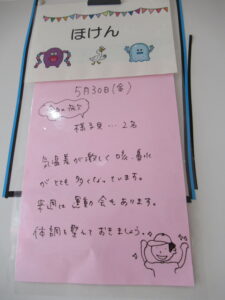 ほけん
5月30日(金)
今日の欠席
様子見…2名
気温差が激しく咳、鼻水
がとても多くなっています。
来週は運動会もあります。
体調を整えておきましょう。